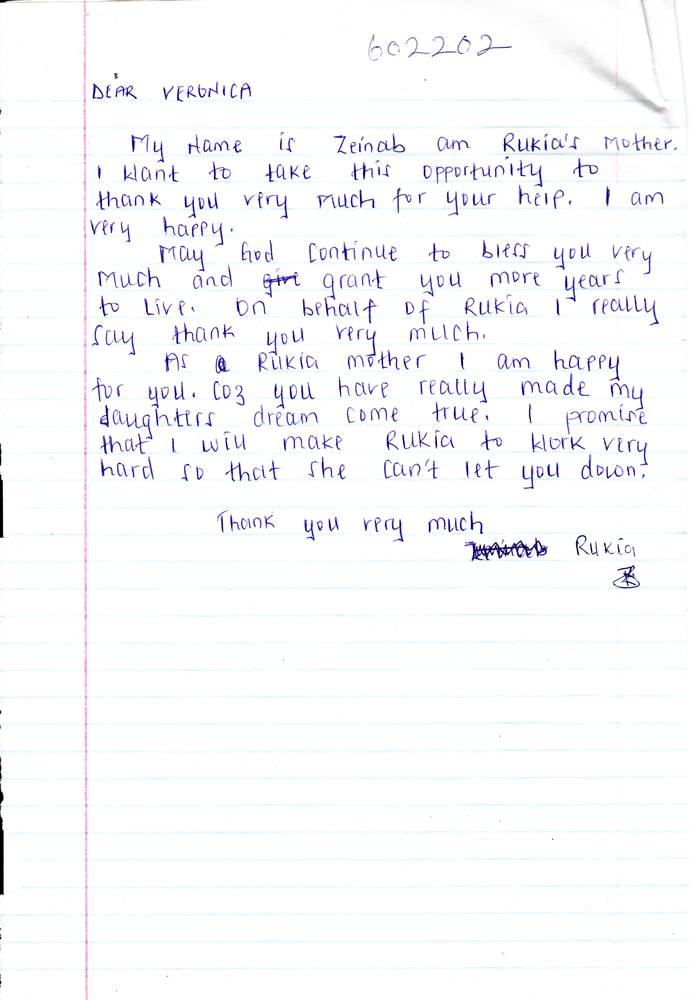 602202
DEAR VERONICA
My Name is Zeinab am Rukia's Mother.
I want to take this opportunity to
thank you very much for your help. I am
very happy.
May God continue to bless you very
much and give grant you more years
to Live. On behalf of Rukia I really
say thank you very much.
As a Rukia mother I am happy
for you. Coz you have really made my
daughters dream come true. I promise
that I will make Rukia to work very
hard so that she can't let you down.
Thank you very much
Rukia